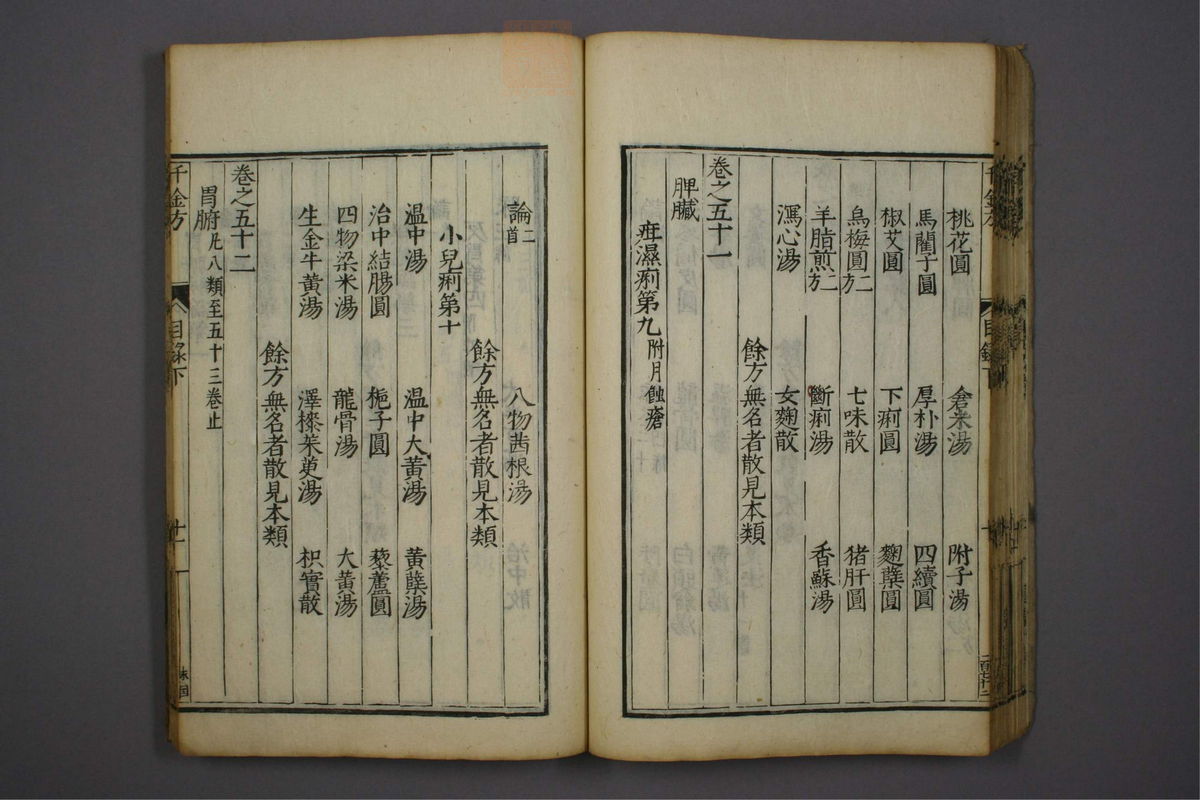 桃花圓 倉米湯 附子湯
馬藺子圓 厚朴湯 四續圓
椒艾圓 下痢圓 麴蘗圓
烏梅圓二方 七味散 猪肝圓
羊脂煎二方 斷痢湯 香蘇湯
瀉心湯 女麴散
餘方無名者散見本類
卷之五十一
脾臟
疳濕痢第九 附月蝕瘡
論二首 八物茜根湯
餘方無名者散見本類
小兒痢第十
温中湯 温中大黃湯 黃蘗湯
治中結腸圓 梔子圓 藜蘆圓
四物梁米湯 龍骨湯 大黃湯
生金牛黃湯 澤㯿茱萸湯 枳實散
餘方無名者散見本類
卷之五十二
胃腑 凡八類至五十三卷止
千金方 目錄下 十一